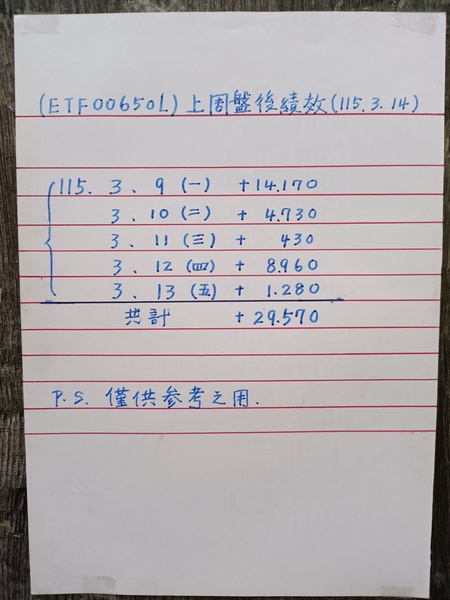 (ETF00650L)上周盤後績效(115.3.14)
115. 3、9(一) +14.170
3、10(二) + 4.730
3、11(三) + 430
3、12(四) + 8.960
3、13(五) + 1.280
共計 +29.570
P.S. 僅供參考之用.